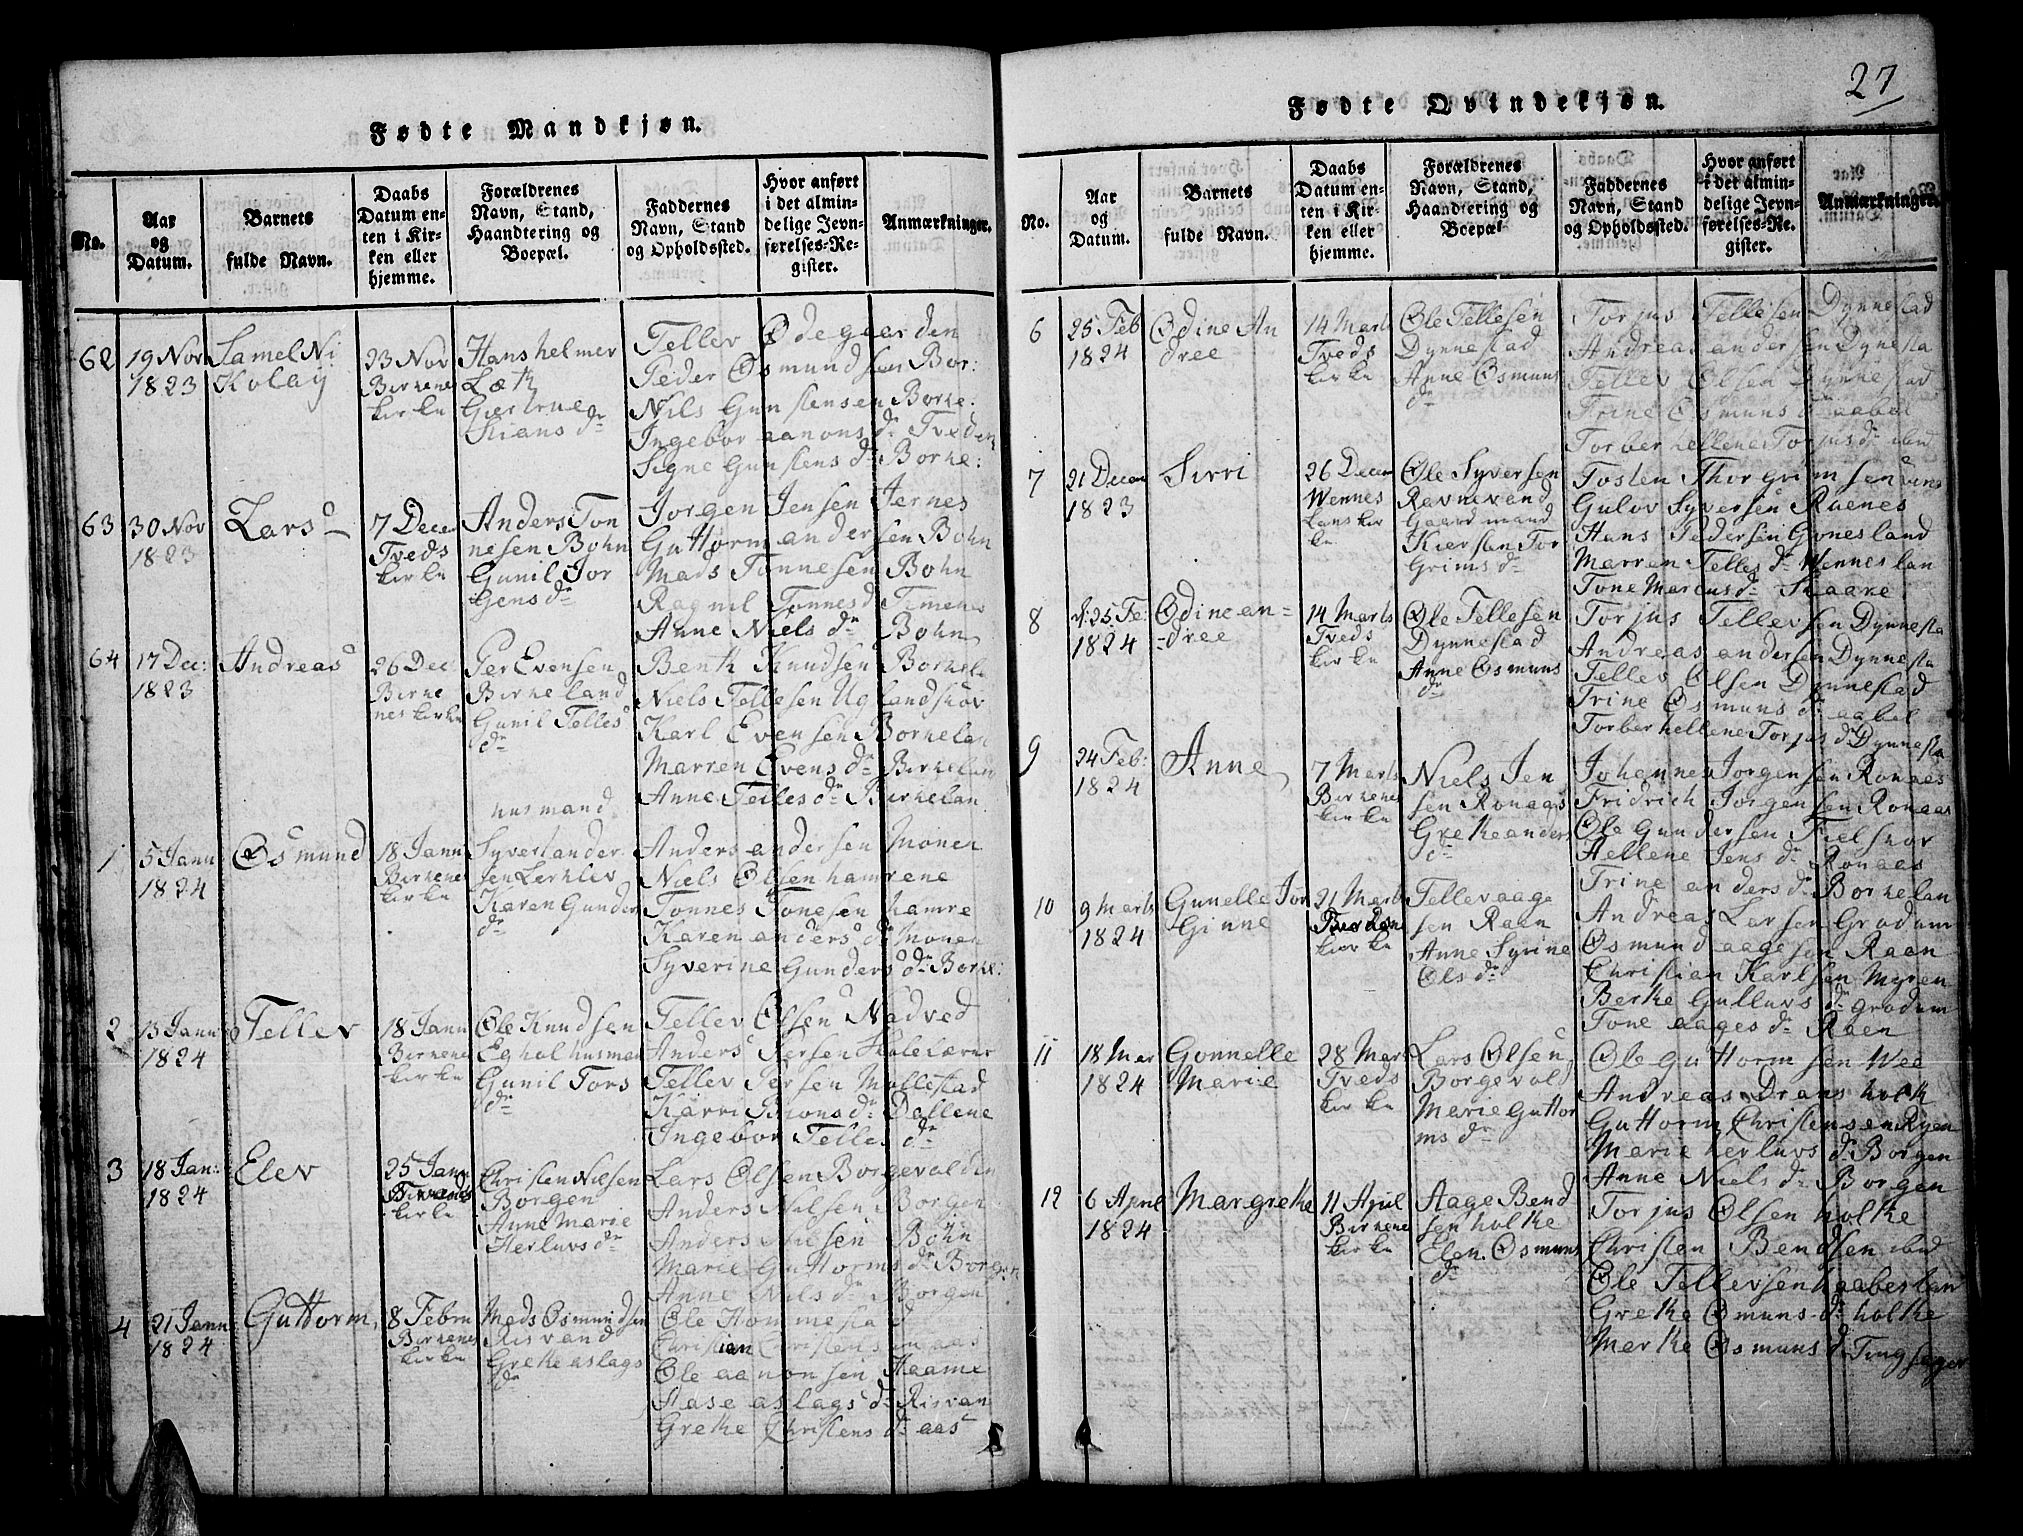 27
Fødte Mandkjøn.
No.
Aar og Datum.
Barnets fulde Navn.
Daabs Datum enten i Kirken eller hjemme.
Forældrenes Navn, Stand, Haandtering og Boepæl.
Faddernes Navn, Stand og Opholdssted.
Hvor anført i det almindelige Jevnførelses-Register.
Anmærkninger.
62
19 Nov
1823
Samel Ni
Kolay
23 Nov
Birkenes
kirke
Hans helmer
Giertrue
Kians dr
Tellev Ødegaarden
Peder Osmundsen Bor:
Nils Gunstensen Borke:
Ingebor aanons dr Tveden
Signe Gunstens dr Borke:
63
30 Nov
1823
Lars
7 Decem
Tveds
kirke
Anders Ton
nesen Bohn
Gunil Jor
Gens dr
Jorgen Jensen Jernes
Guttorm andersen Bohn
Mads Tonnesen Bohn
Ragnil Tonnes d Temens
Anne Niels dr Bohn
64
17 Dec:
1823
Andreas
26 Dec
Birke
nes kirke
Per Evensen
Birkeland
Gunil Telles
dr
Benth Knudsen Borkela
Niels Tellesen Uglandskov
Karl Evensen Borkelan
Marren Evens dr Birkelan
Anne Telles dr Birkelan
1
5 Jann
1824
Osmund
18 Jann
Birkenes
kirke
husmand
Syvert ander
sen Lerklev
Karen Gunder
dr
Anders andersen Monen
Niels Olsen hamrene
Tonnes Tonesen hamre
Karen anders dr Monen
Syverine Gunders dr Borke:
2
13 Jann
1824
Tellev
18 Jann
Birkene
kirke
Ole Knudsen
Eghol husman
Gunil Tors
dr
Tellev Olsen Nadved
Anders Persen Skolelærer
Tellev Persen Mollestad
Karri Bions dr Daslene
Ingebor Telles dr
3
18 Jan:
1824
Elev
25 Jann
kirke
Christen Nielsen
Borgen
Anne Marie
Herluvs dr
Lars Olsen Borgevolden
Anders Nilsen Borgen
Anders Nilsen Bohn
Marie Guttorms dr Borgen
Anne Nils dr Borgen
4
21 Jann
1824
Guttorm
8 Febru
Birkenes
kirke
Mads Osmundsen
Risvand
Grethe aslags
dr
Ole Hommestad
Christian Christensen aas
Ole aanonsen Haame
Aase aslags dr Risvan
Grethe Christens dr aas
Fødte Qvindekjøn.
No.
Aar og Datum.
Barnets fulde Navn.
Daabs Datum enten i Kirken eller hjemme.
Forældrenes Navn, Stand, Haandtering og Boepæl.
Faddernes Navn, Stand og Opholdssted.
Hvor anført i det almindelige Jevnførelses-Register.
Anmærkninger.
6
25 Feb
1824
Odine An
dree
14 Marts
Tveds
kirke
Ole Tellesen
Dynnestad
Anne Osmuns
dr
Torjus Tellesen Dynnestad
Andreas andersen Dynesta
Tellev Olsen Dynnestad
Trine Osmuns dr aabel
Torber hellene Torjus dr ibid
7
21 Decem
1823
Sirri
26 Decem
Wennes
lans kir
ke
Ole Syversen
Ravnevand
Gaardmand
Kiersten Tor
Grims dr
Tosten Thorgrimsen
Gulov Syversen Raenes
Hans Pedersen Gonesland
Marren Telles dr Wenneslan
Tone Marcus dr Skaare
8
d: 25 Fe:
1824
Odine an=
=dree
14 Marts
Tveds
kirke
Ole Tellesen
Dynnestad
Anne Osmuns
dr
Torjus Tellevsen Dynnesta
Andreas andersen Dynnesta
Tellev Olsen Dynnestad
Trine Osmuns dr aabel
Torber hellene Torjus dr Dynnesta
9
24 Feb:
1824
Anne
7 Marts
Birkenes
kirke
Niels Jen
sen Ronaas
Grethe anders
dr
Johannes Jorgensen Ronaas
Fridrich Jorgensen Ronaas
Ole Gundersen Fielskor
Aellene Jens dr Ronaas
Trine anders dr Borkelan
10
9 Marts
1824
Gunelle Jor
Ginne
21 Marts
kirke
Tellev aage
sen Raen
Anne Syrine
Ols dr
Andreas Larsen Grodum
Osmund aagesen Raan
Christian Karlsen Myren
Berthe Gulluvs dr grodum
Tone aages dr Raen
11
18 Mar
1824
Gonnelle
Marie
28 Mar
Tveds
kirke
Lars Olsen
Borgevol
Marie Guttor
ms dr
Ole guttormsen Wee
Andreas Drans holth
Guttorm Christensen Ryen
Marie herluvs dr Borgen
Anne Niels dr Borgen
12
6 April
1824
Margrethe
11 April
Birkene
kirke
Aage Bend
sen holthe
Elen Osmuns
dr
Torjus Olsen holthe
Christen Bendsen ibid
Ole Tellevsen haabeslan
Grethe Osmuns dr holthe
Merthe Osmuns dr Tingsager